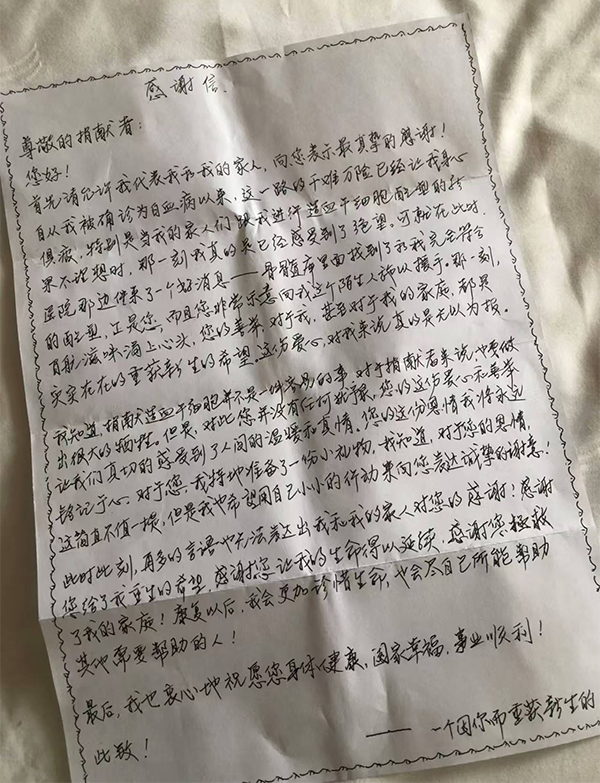 感谢信.
尊敬的捐献者：
您好！
首先请允许我代表我和我的家人，向您表示最真挚的感谢！
自从我被确诊为白血病以来，这一路的千难万险已经让我身心
俱疲，特别是当我的家人们跟我进行造血干细胞配型的结
果不理想时，那一刻我真的是已经感受到了绝望。可就在此时，
医院那边传来了一个好消息——骨髓库里面找到了和我完全符合
的配型，正是您，而且您非常乐意向我这个陌生人施以援手。那一刻，
百般滋味涌上心头，您的善举，对于我，甚至对于我的家庭，都是
实实在在的重获新生的希望，这份爱心，对我来说真的是无以为报。
我知道，捐献造血干细胞并不是一件容易的事，对于捐献者来说也要做
出很大的牺牲。但是，对此您并没有任何犹豫，您的这份爱心和善举
让我们真切的感受到了人间的温暖和真情。您的这份恩情我将永远
铭记于心。对于您，我特地准备了一份小礼物，我知道，对于您的恩情，
这简直不值一提，但是我也希望用自己小小的行动来向您表达诚挚的谢意！
此时此刻，再多的言语也无法表达出我和我的家人对您的感谢！感谢
您给了我重生的希望，感谢您让我的生命得以延续，感谢您拯救
了我的家庭！康复以后，我会更加珍惜生命，也会尽自己所能帮助
其他需要帮助的人！
最后，我也衷心地祝愿您身体健康，阖家幸福，事业顺利！
此致！
——一个因你而重获新生的